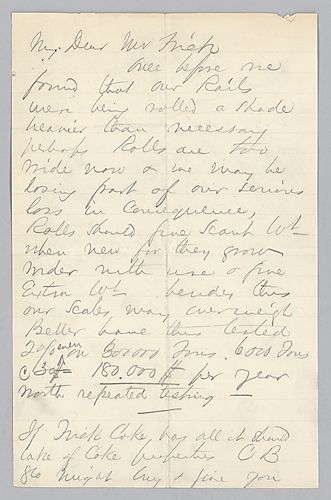 My Dear Mr Frick
Once before we
found that our Rails
were being rolled a shade
heavier than necessary
perhaps Rolls are too
wide now & we may be
losing part of our serious
loss in consequence,
Rolls should give scant Wt
when new for they grow
wider with use & give
Extra Wt besides this
our Scales may overweigh
Better have this tested
2% even on 300000 Tons 6000 Tons
@ 30 180.000 $ per year
worth repeated testing —
If Frick Coke, has all it should
take of Coke properties C B
&c might buy & give you